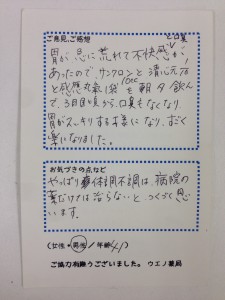 ご意見、ご感想
と口臭
胃が急に荒れて不快感が
あったので、サンクロンと清心元78
と感應丸氣1袋を朝夕飲ん
10cc
で、3日目頃から、口臭もなくなり、
胃がスッキリする様になり、すごく
楽になりました。
お気づきの点など
やっぱり体調不調は、病院の
薬だけでは治らないとつくづく思
います。
(女性・男性/年齢41)
ご協力有難うございました。 ウエノ薬局